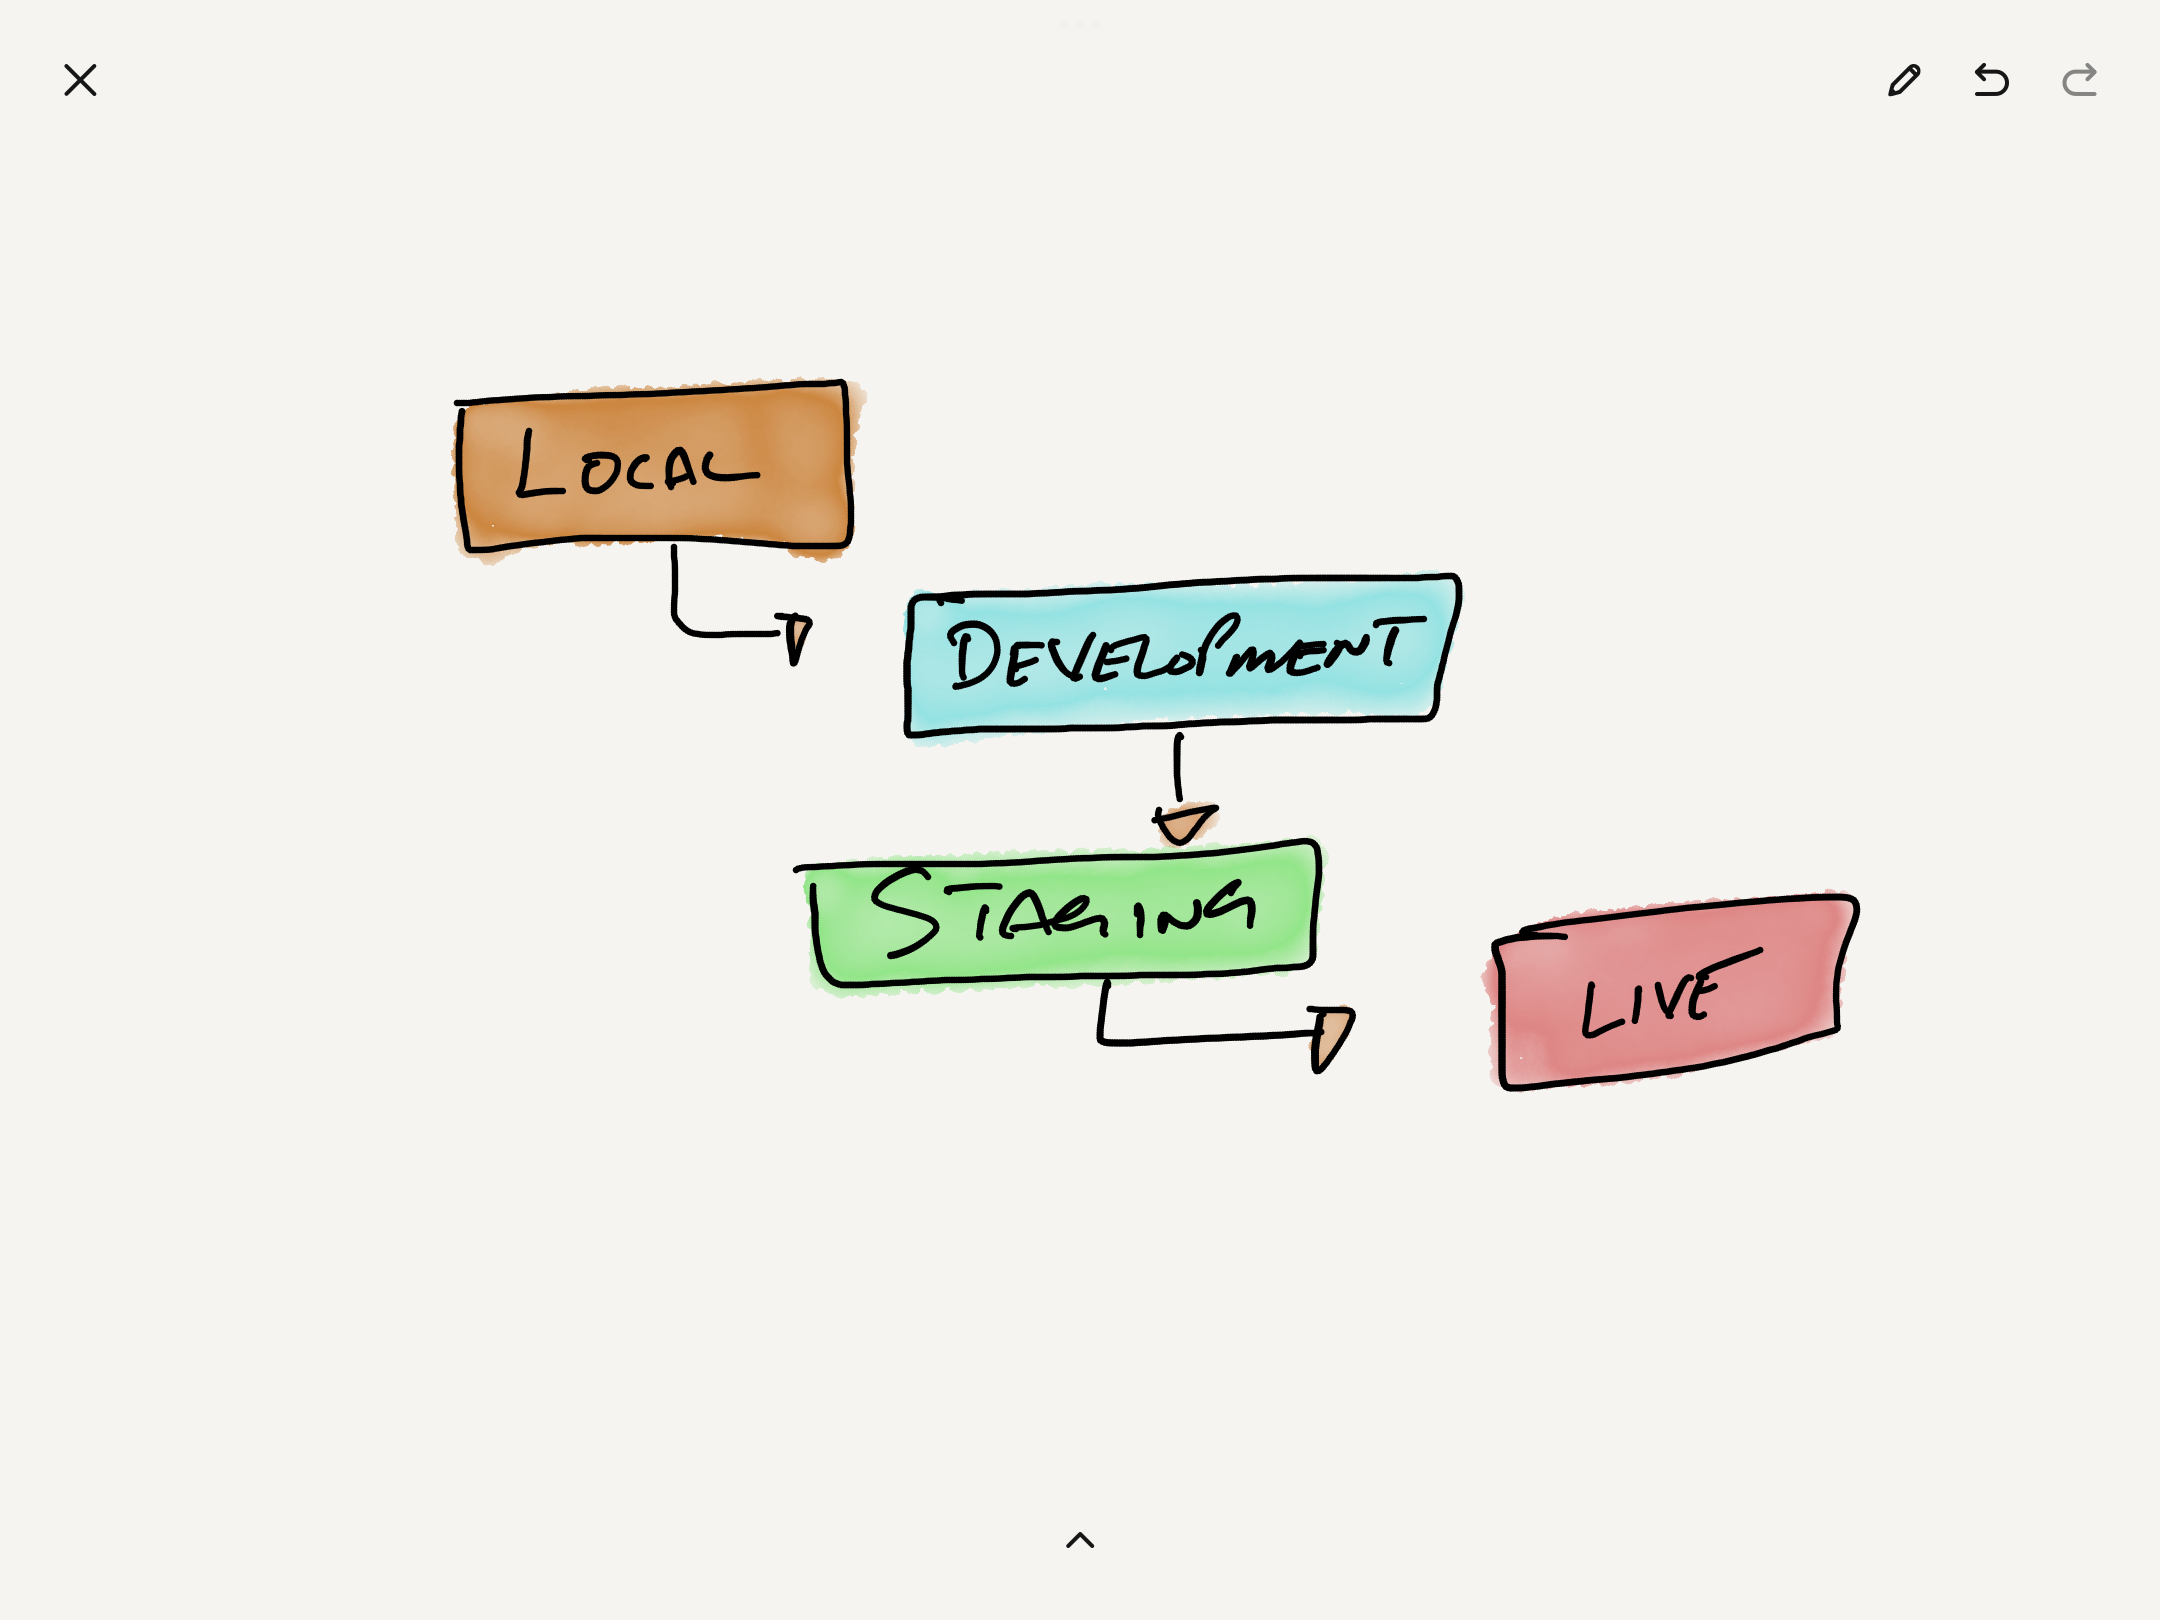 LOCAL
DEVELOPMENT
STAGING
LIVE